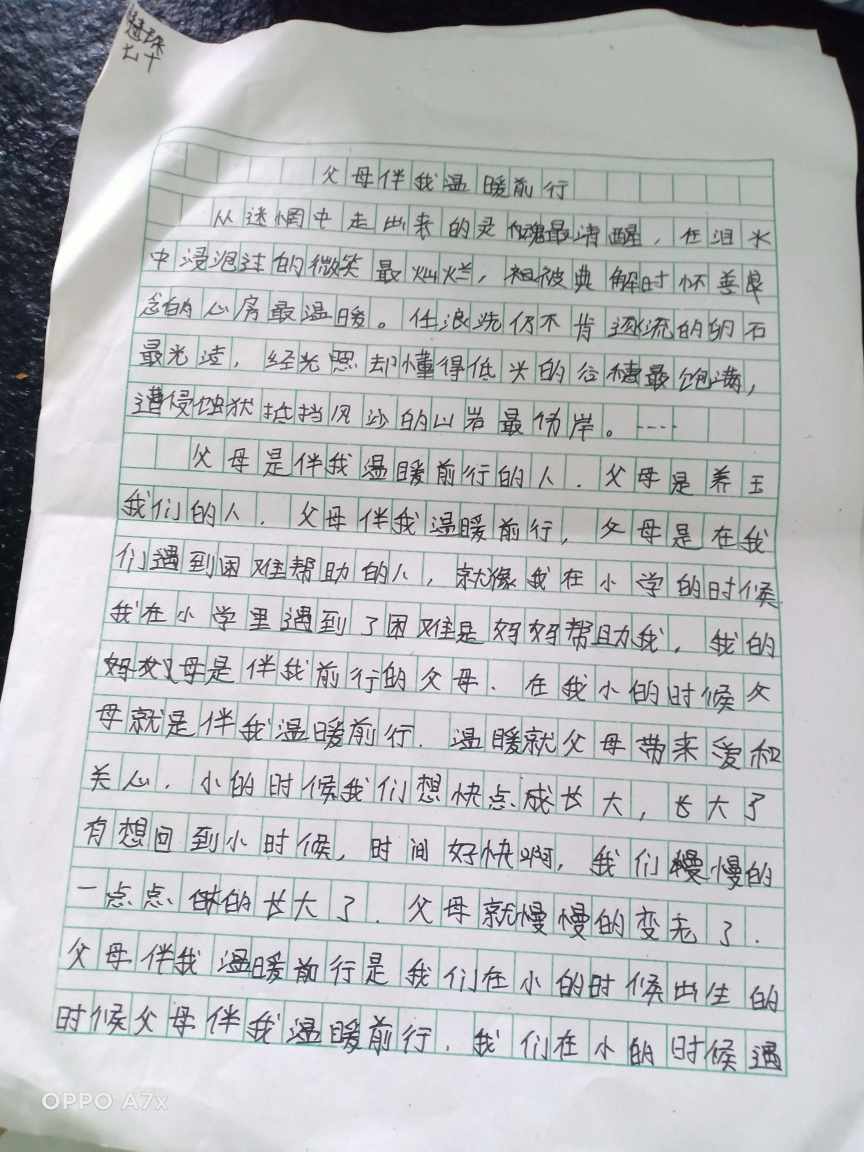 慧珠
七十
父母伴我温暖前行
从迷惘中走出来的灵魂最清醒，在泪水
中浸泡过的微笑最灿烂，被误解时怀善良
念的心房最温暖。任浪洗仍不肯逐流的卵石
最光洁，经光照却懂得低头的谷穗最饱满，
遭侵蚀犹抵挡风沙的山岩最伟岸。……
父母是伴我温暖前行的人．父母是养玉
我们的人．父母伴我温暖前行，父母是在我
们遇到困难帮助的人，就像我在小学的时候
我在小学里遇到了困难是妈妈帮助我，我的
父母是伴我前行的父母．在我小的时候父
母就是伴我温暖前行．温暖就父母带来爱和
关心．小的时候我们想快点成长大，长大了
有想回到小时候，时间好快啊，我们慢慢的
一点点的长大了．父母就慢慢的变老了．
父母伴我温暖前行是我们在小的时候出生的
时候父母伴我温暖前行．我们在小的时候遇
OPPO A7x